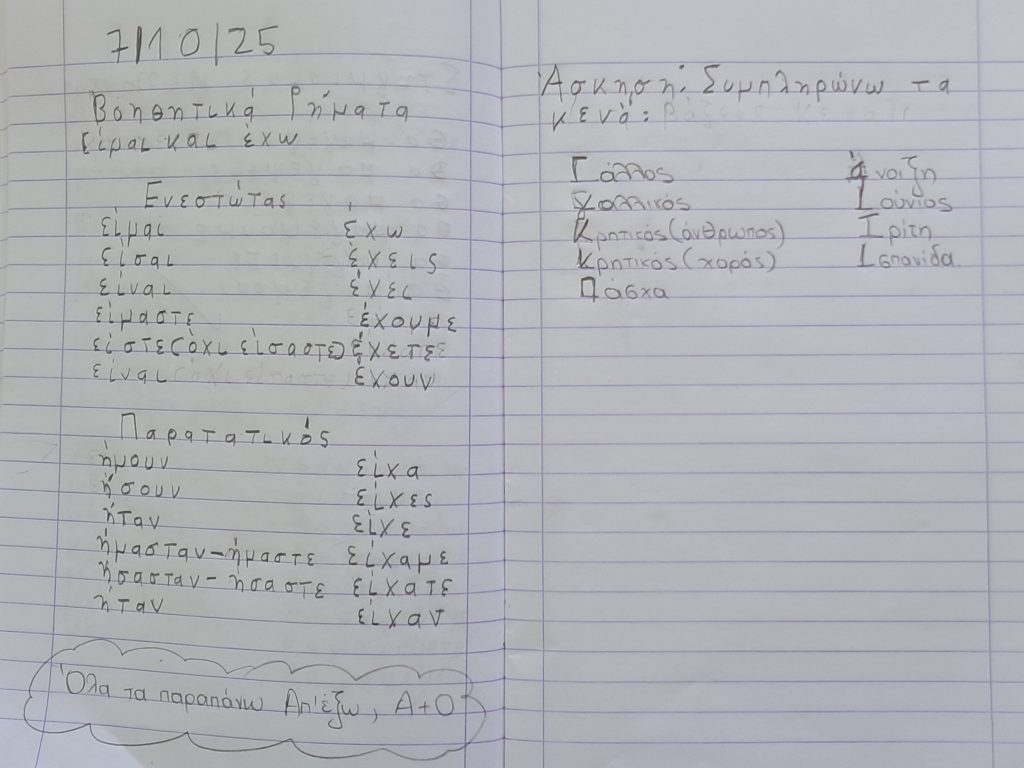 7/10/25
Βοηθητικά Ρήματα
Είμαι και έχω
Ενεστώτας
είμαι έχω
είσαι έχεις
είναι έχει
είμαστε έχουμε
είστε (όχι είσαστε) έχετε
είναι έχουν
Παρατατικός
ήμουν είχα
ήσουν είχες
ήταν είχε
ήμασταν-ήμαστε είχαμε
ήσασταν-ήσαστε είχατε
ήταν είχαν
Όλα τα παραπάνω Απ'έξω, Α+Ο
Άσκηση: Συμπληρώνω τα
κενά:
Γάλλος
γαλλικός
Κρητικός (άνθρωπος)
κρητικός (χορός)
Πάσχα
άνοιξη
Ιούνιος
Τρίτη
Ισπανίδα